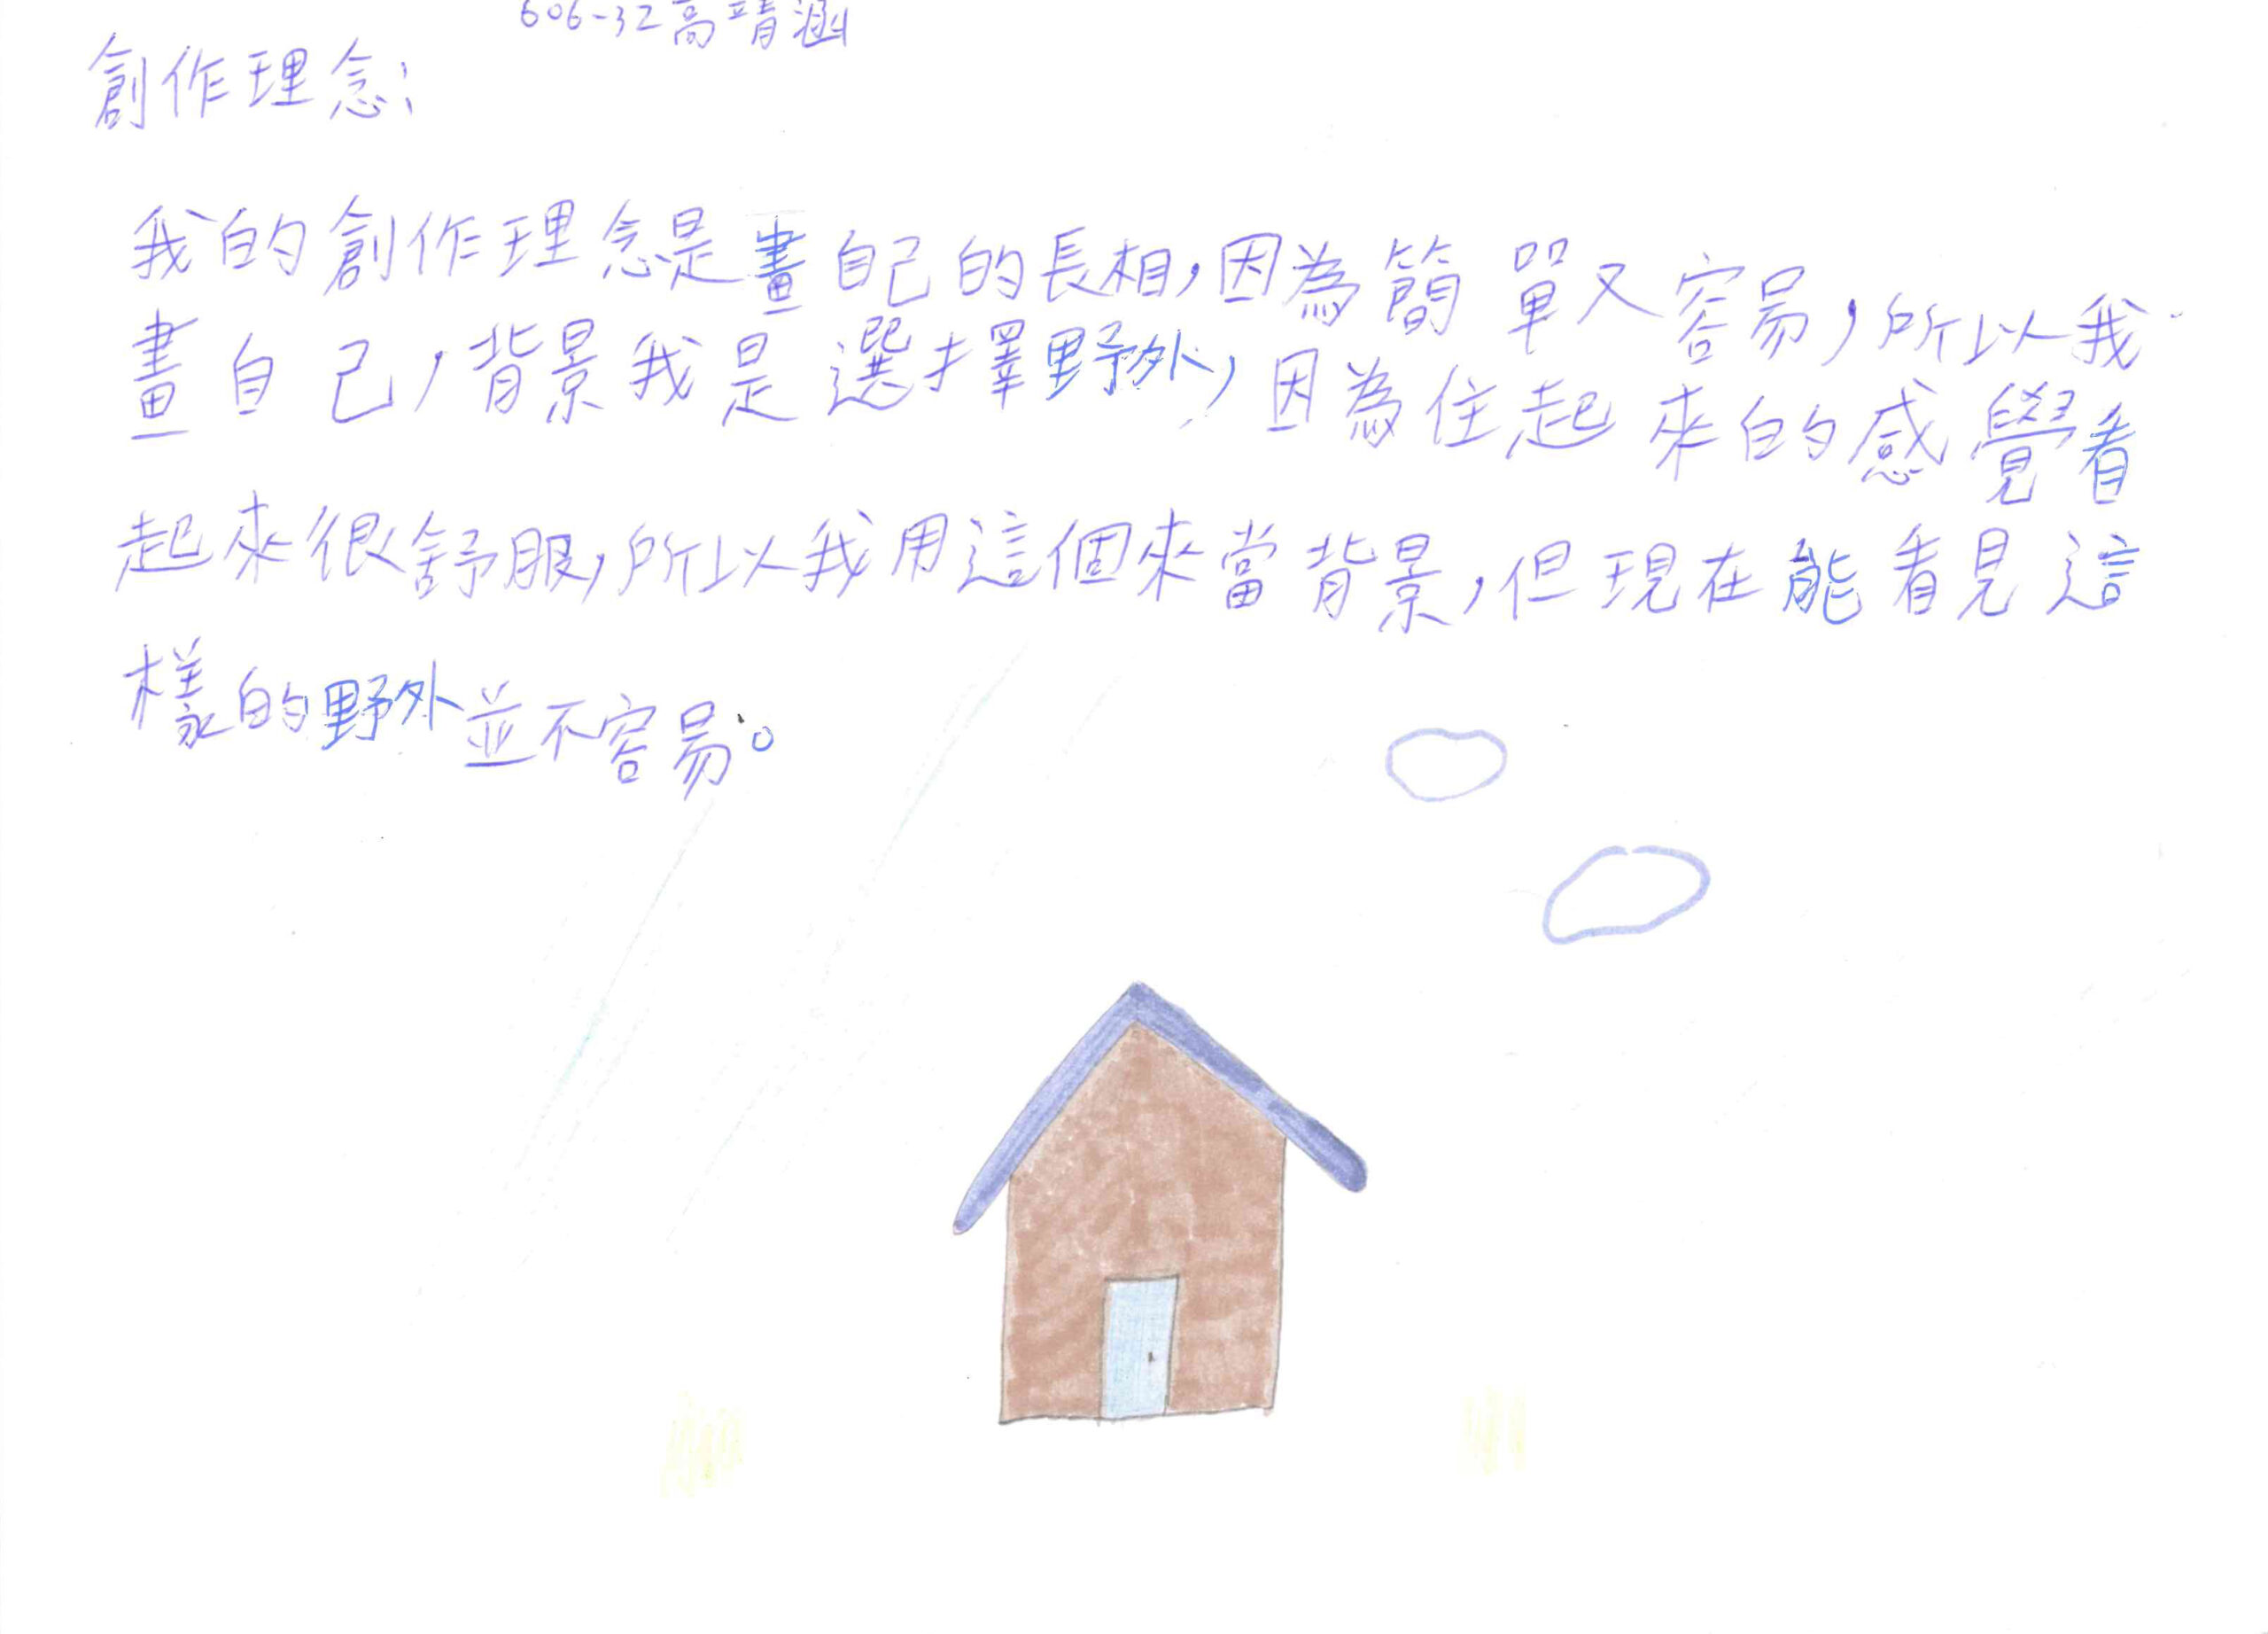 606-32高靖涵
創作理念:
我的創作理念是畫自己的長相,因為簡單又容易,所以我
畫自己,背景我是選擇野外,因為住起來的感覺看
起來很舒服,所以我用這個來當背景,但現在能看見這
樣的野外並不容易。